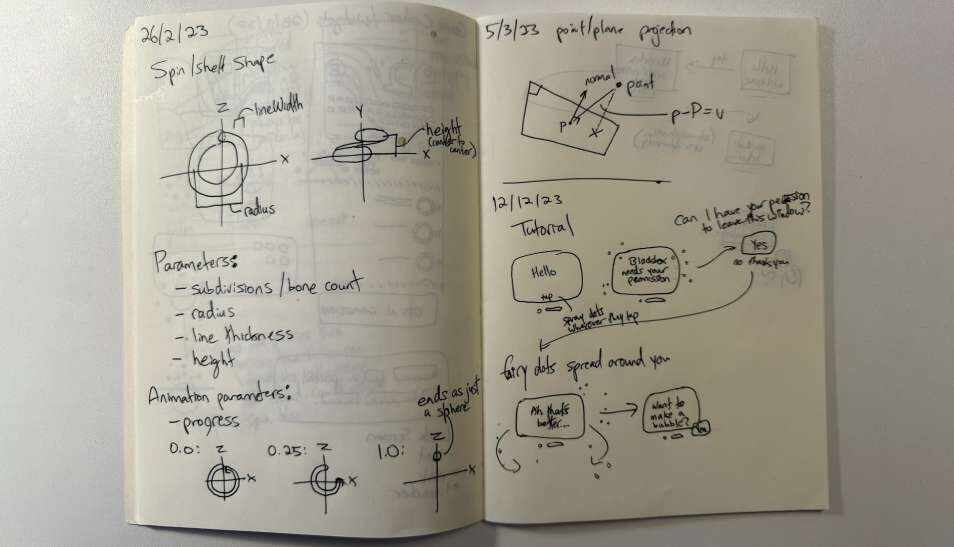 26/2/23
Spin/shell Shape
Z
lineWidth
X
radius
Y
height
(center to
center)
X
Parameters:
- subdivisions/bone count
- radius
- line thickness
- height
Animation parameters:
- progress
ends as just
a sphere
0.0:
Z
X
0.25:
Z
X
1.0:
Z
X
5/3/23 point/plane projection
normal
point
P
p-P=v
12/12/23
Tutorial
Can I have your permission
to leave this window?
Hello
tap
needs your
permission
Yes
no thank you
spray dots
wherever they tap
fairy dots spread around you
Ah that's
better...
want to
make a
bubble?